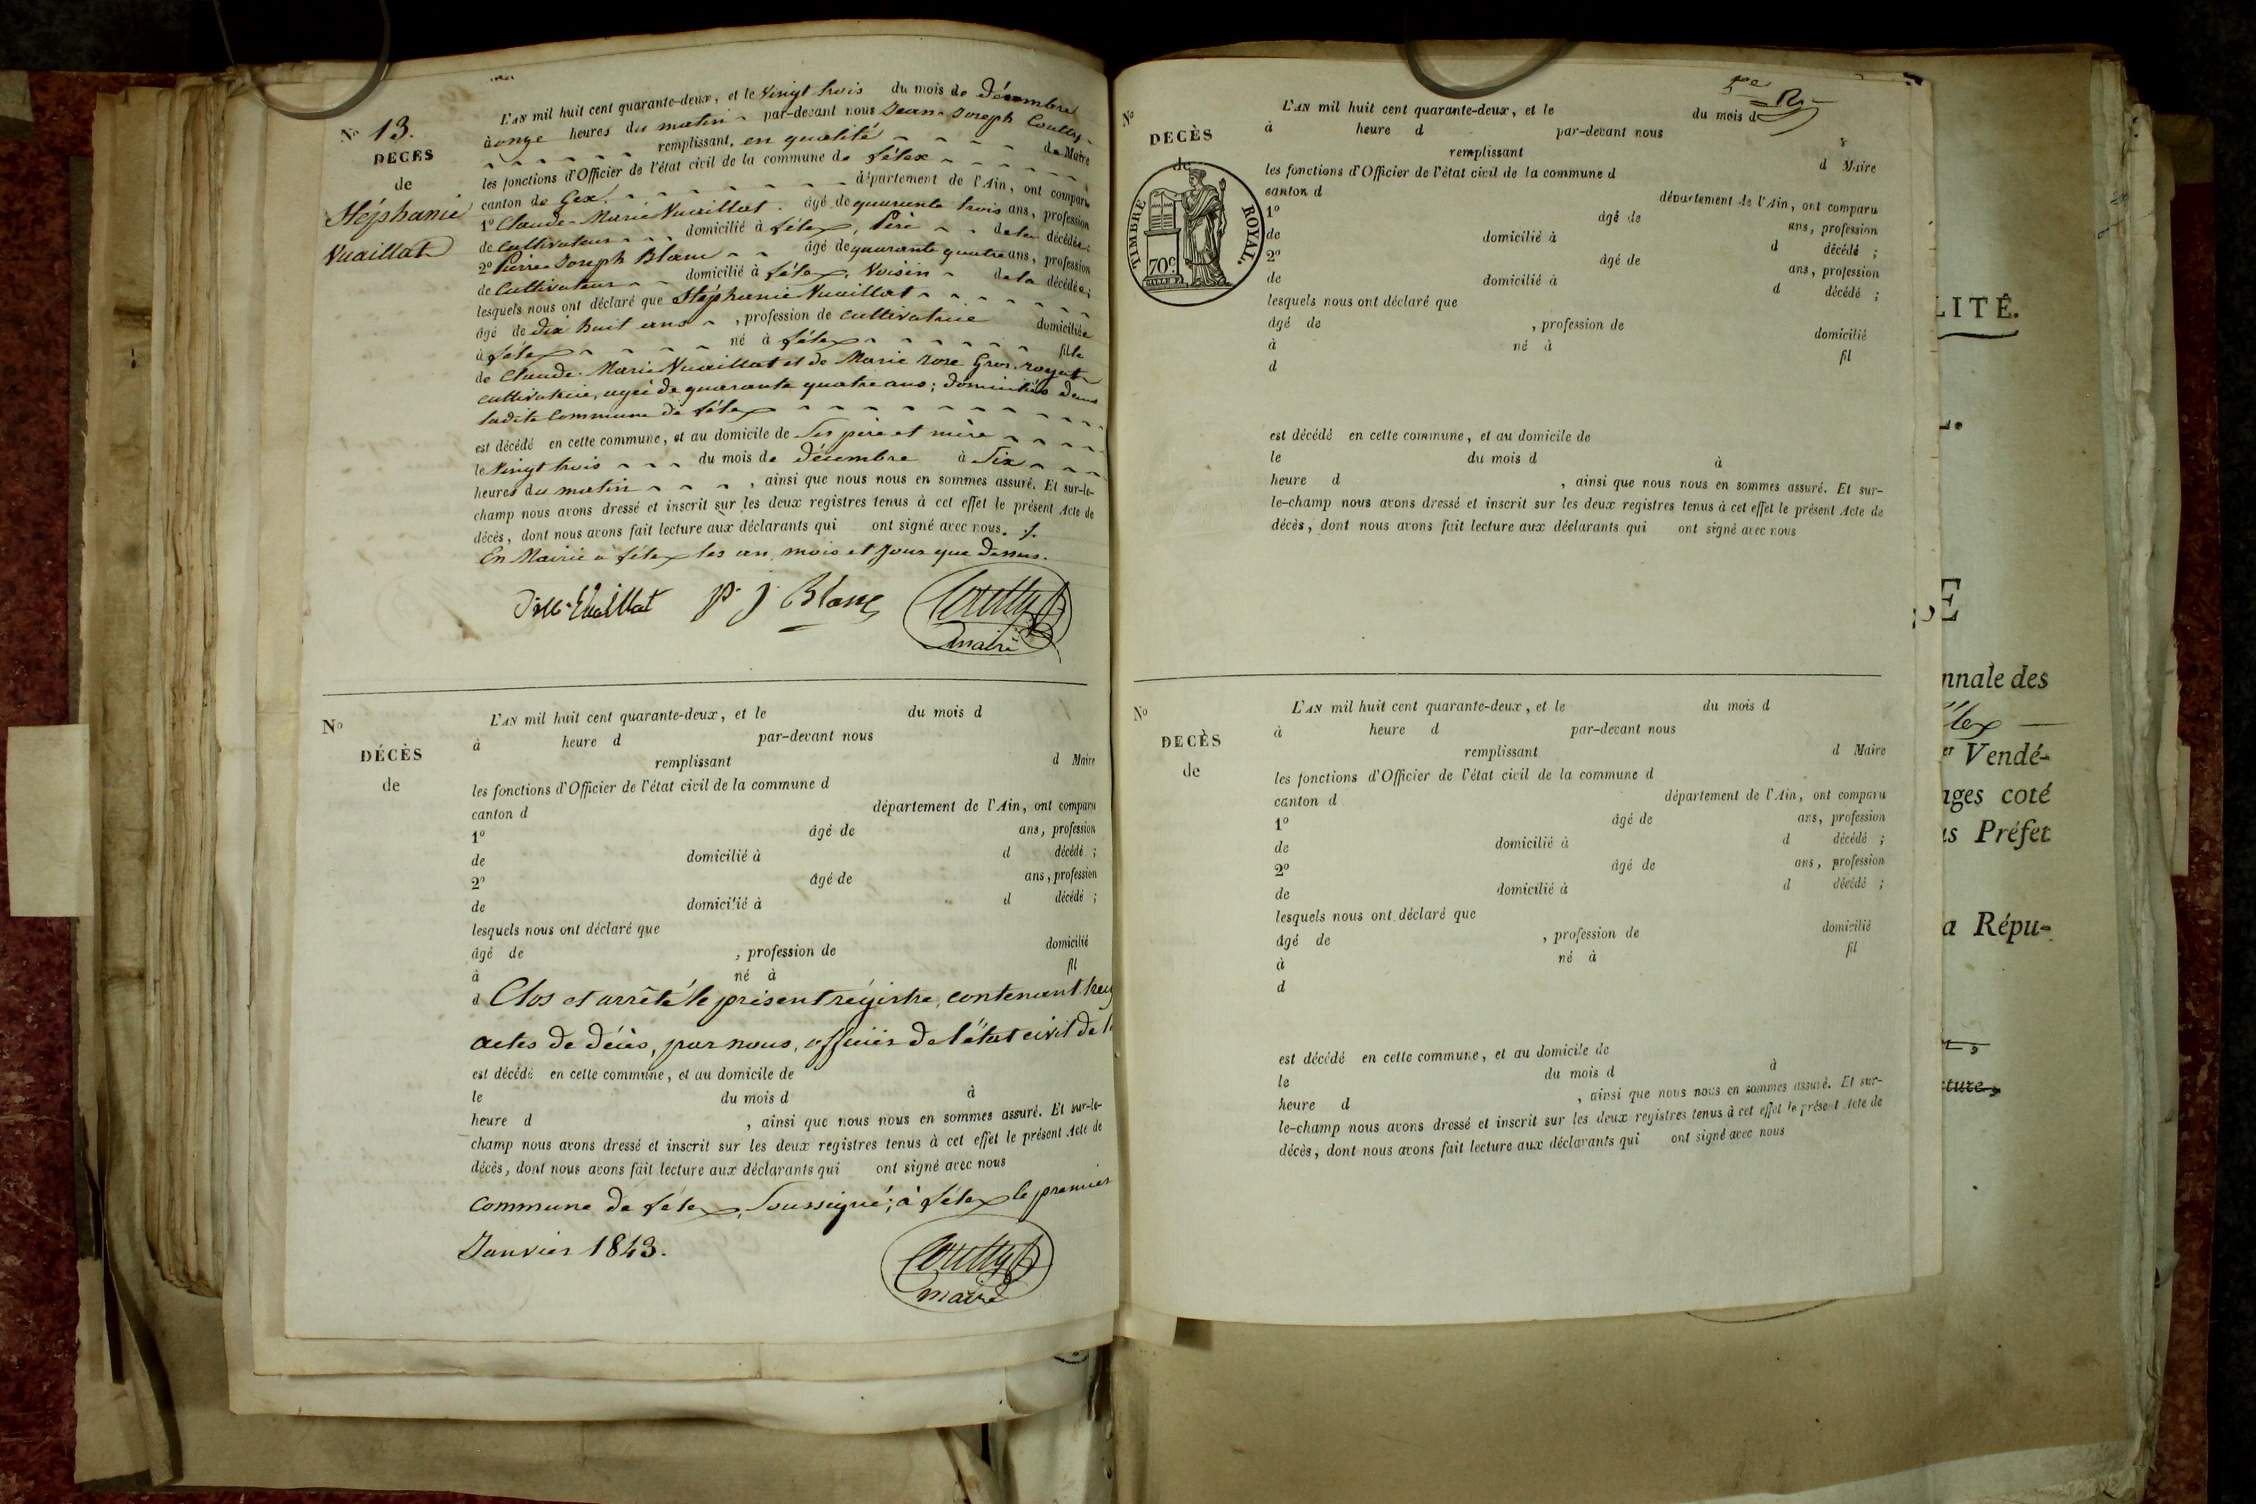 N° 13.
DÉCÈS
de
Stéphanie
Vuaillat
L'AN mil huit cent quarante-deux, et le Vingt trois du mois de décembre
à onze heures du matin par-devant nous Jean-Joseph Coutty
remplissant, en qualité de Maire
les fonctions d'Officier de l'état civil de la commune de Lélex
canton de Gex. département de l'Ain, ont comparu
1° Claude-Marie Vuaillat. âgé de quarante trois ans, profession
de cultivateur domicilié à Lélex, Père de la décédée;
2° Pierre Joseph Blanc âgé de quarante quatre ans, profession
de Cultivateur domicilié à Lélex, Voisin de la décédée;
lesquels nous ont déclaré que Stéphanie Vuaillat
âgé de dix huit ans, profession de cultivatrice domiciliée
à Lélex né à Lélex fille
de Claude-Marie Vuaillat et de Marie rose Gros-royat
cultivatrice, agée de quarante quatre ans; domiciliés dans
ladite Commune de Lélex
est décédé en cette commune, et au domicile de Ses père et mère
le Vingt trois du mois de décembre à Six
heures du matin, ainsi que nous nous en sommes assuré. Et sur-le-
champ nous avons dressé et inscrit sur les deux registres tenus à cet effet le présent Acte de
décès, dont nous avons fait lecture aux déclarants qui ont signé avec nous.
En Mairie à Lélex les an, mois et Jour que dessus.
Vuaillat P. J. Blanc Coutty
maire
N°
DÉCÈS
de
L'AN mil huit cent quarante-deux, et le du mois d
à heure d par-devant nous
remplissant d Maire
les fonctions d'Officier de l'état civil de la commune d
canton d département de l'Ain, ont comparu
1° âgé de ans, profession
de domicilié à d décédé ;
2° âgé de ans, profession
de domicilié à d décédé ;
lesquels nous ont déclaré que
âgé de , profession de domicilié
à né à fil
d Clos et arrêté le présent régistre, contenant
actes de décès, par nous, officier de l'état civil de
est décédé en cette commune, et au domicile de
le du mois d à
heure d , ainsi que nous nous en sommes assuré. Et sur-le-
champ nous avons dressé et inscrit sur les deux registres tenus à cet effet le présent Acte de
décès, dont nous avons fait lecture aux déclarants qui ont signé avec nous
commune de Lélex, Soussigné; à Lélex le premier
Janvier 1843.
Coutty
maire
N°
DÉCÈS
de
TIMBRE ROYAL.
70c
L'AN mil huit cent quarante-deux, et le du mois d
à heure d par-devant nous
remplissant d Maire
les fonctions d'Officier de l'état civil de la commune d
canton d département de l'Ain, ont comparu
1° âgé de ans, profession
de domicilié à d décédé ;
2° âgé de ans, profession
de domicilié à d décédé ;
lesquels nous ont déclaré que
âgé de , profession de domicilié
à né à fil
d
est décédé en cette commune, et au domicile de
le du mois d à
heure d , ainsi que nous nous en sommes assuré. Et sur-
le-champ nous avons dressé et inscrit sur les deux registres tenus à cet effet le présent Acte de
décès, dont nous avons fait lecture aux déclarants qui ont signé avec nous
N°
DÉCÈS
de
L'AN mil huit cent quarante-deux, et le du mois d
à heure d par-devant nous
remplissant d Maire
les fonctions d'Officier de l'état civil de la commune d
canton d département de l'Ain, ont comparu
1° âgé de ans, profession
de domicilié à d décédé ;
2° âgé de ans, profession
de domicilié à d décédé ;
lesquels nous ont déclaré que
âgé de , profession de domicilié
à né à fil
d
est décédé en cette commune, et au domicile de
le du mois d à
heure d , ainsi que nous nous en sommes assuré. Et sur-
le-champ nous avons dressé et inscrit sur les deux registres tenus à cet effet le présent Acte de
décès, dont nous avons fait lecture aux déclarants qui ont signé avec nous
LITÉ.
nnale des
lex
er Vendé-
ages coté
s Préfet
a Répu-
cture,